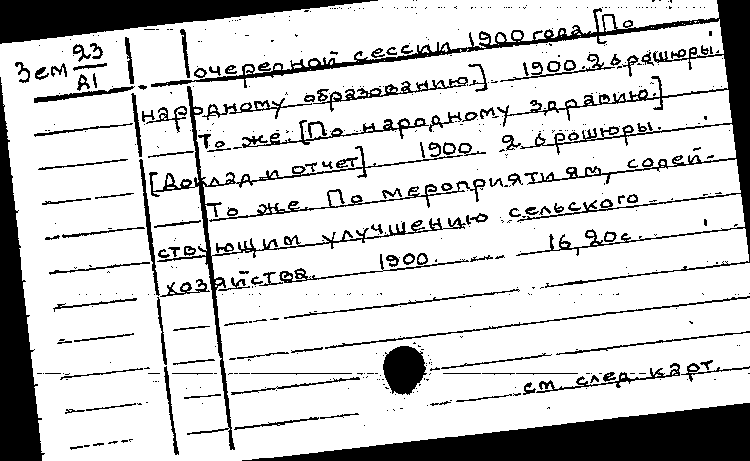 Зем 23/А1
очередной сессии 1900 года [По
народному образованию.] 1900. 2 брошюры.
То же. [По народному здравию.]
[Доклад и отчет]. 1900. 2 брошюры.
То же. По мероприятиям, содей-
ствующим улучшению сельского
хозяйства. 1900. 16, 20с.
см. след. карт.